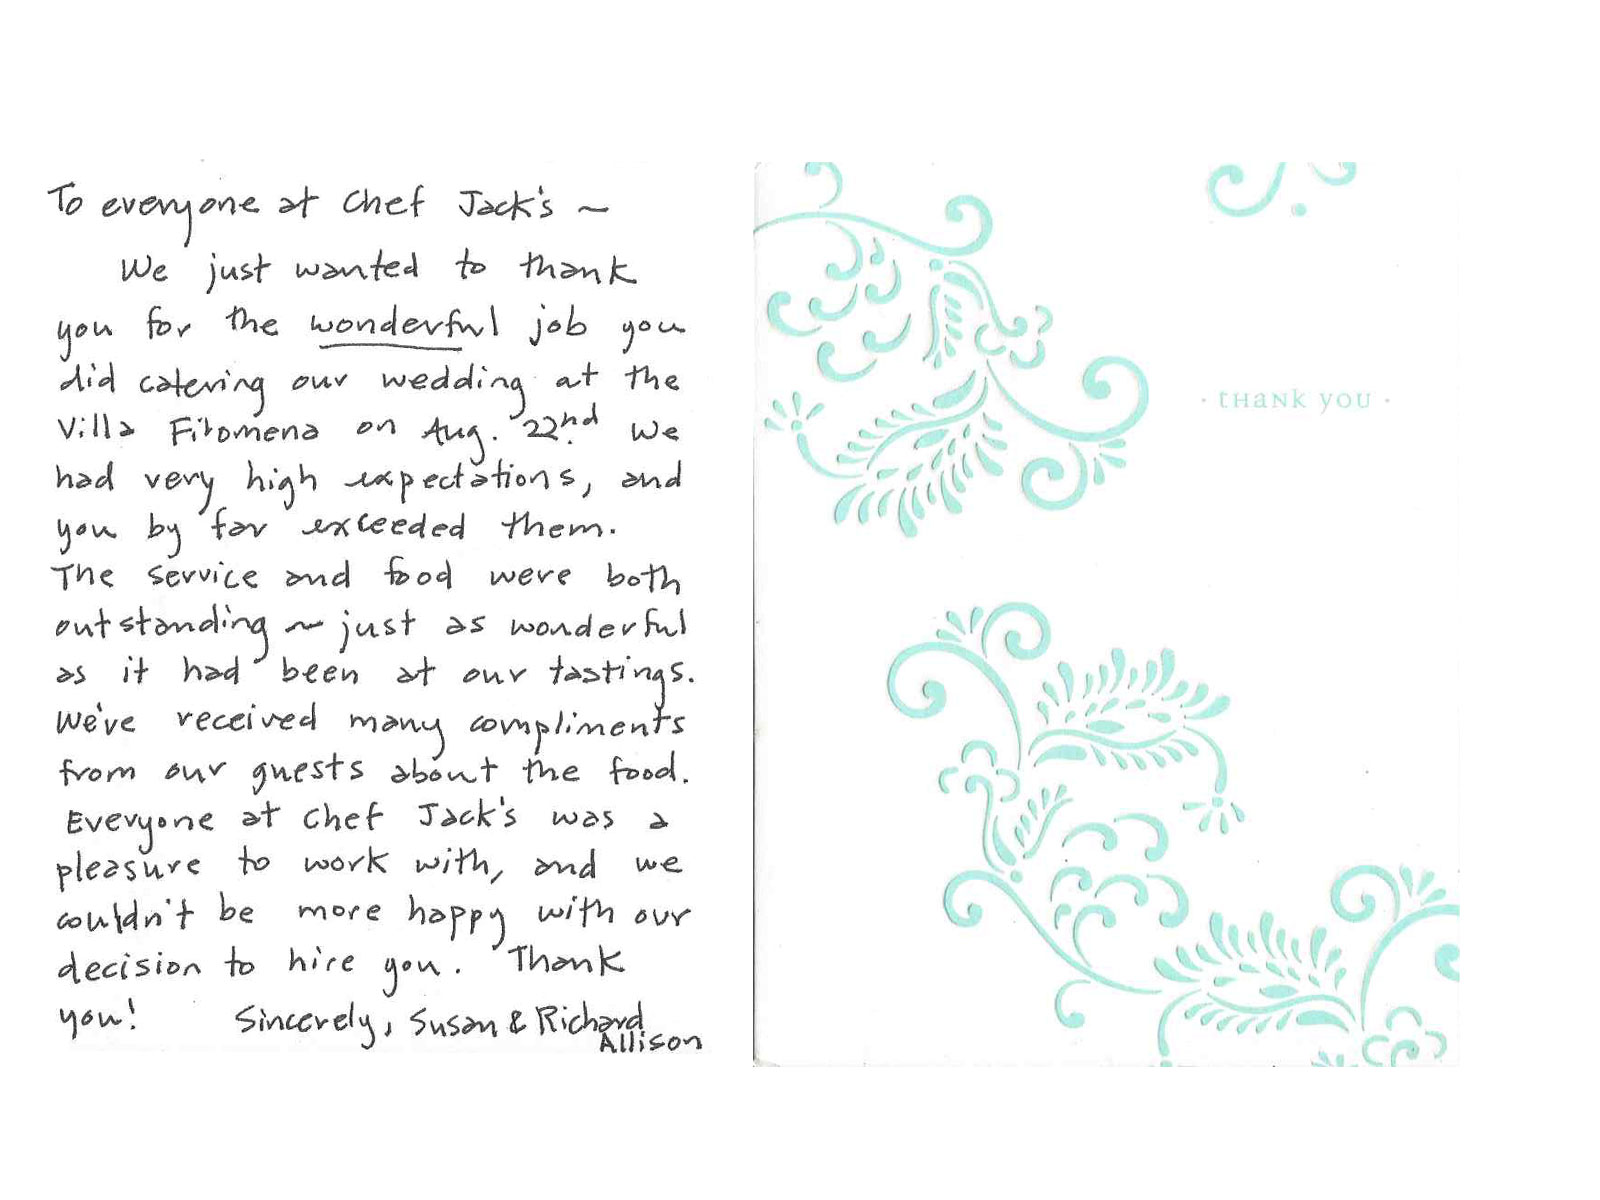 To everyone at Chef Jack's ~
We just wanted to thank
you for the wonderful job you
did catering our wedding at the
Villa Filomena on Aug. 22nd. We
had very high expectations, and
you by far exceeded them.
The service and food were both
outstanding ~ just as wonderful
as it had been at our tastings.
We've received many compliments
from our guests about the food.
Everyone at Chef Jack's was a
pleasure to work with, and we
couldn't be more happy with our
decision to hire you. Thank
you! Sincerely, Susan & Richard
Allison
· thank you ·